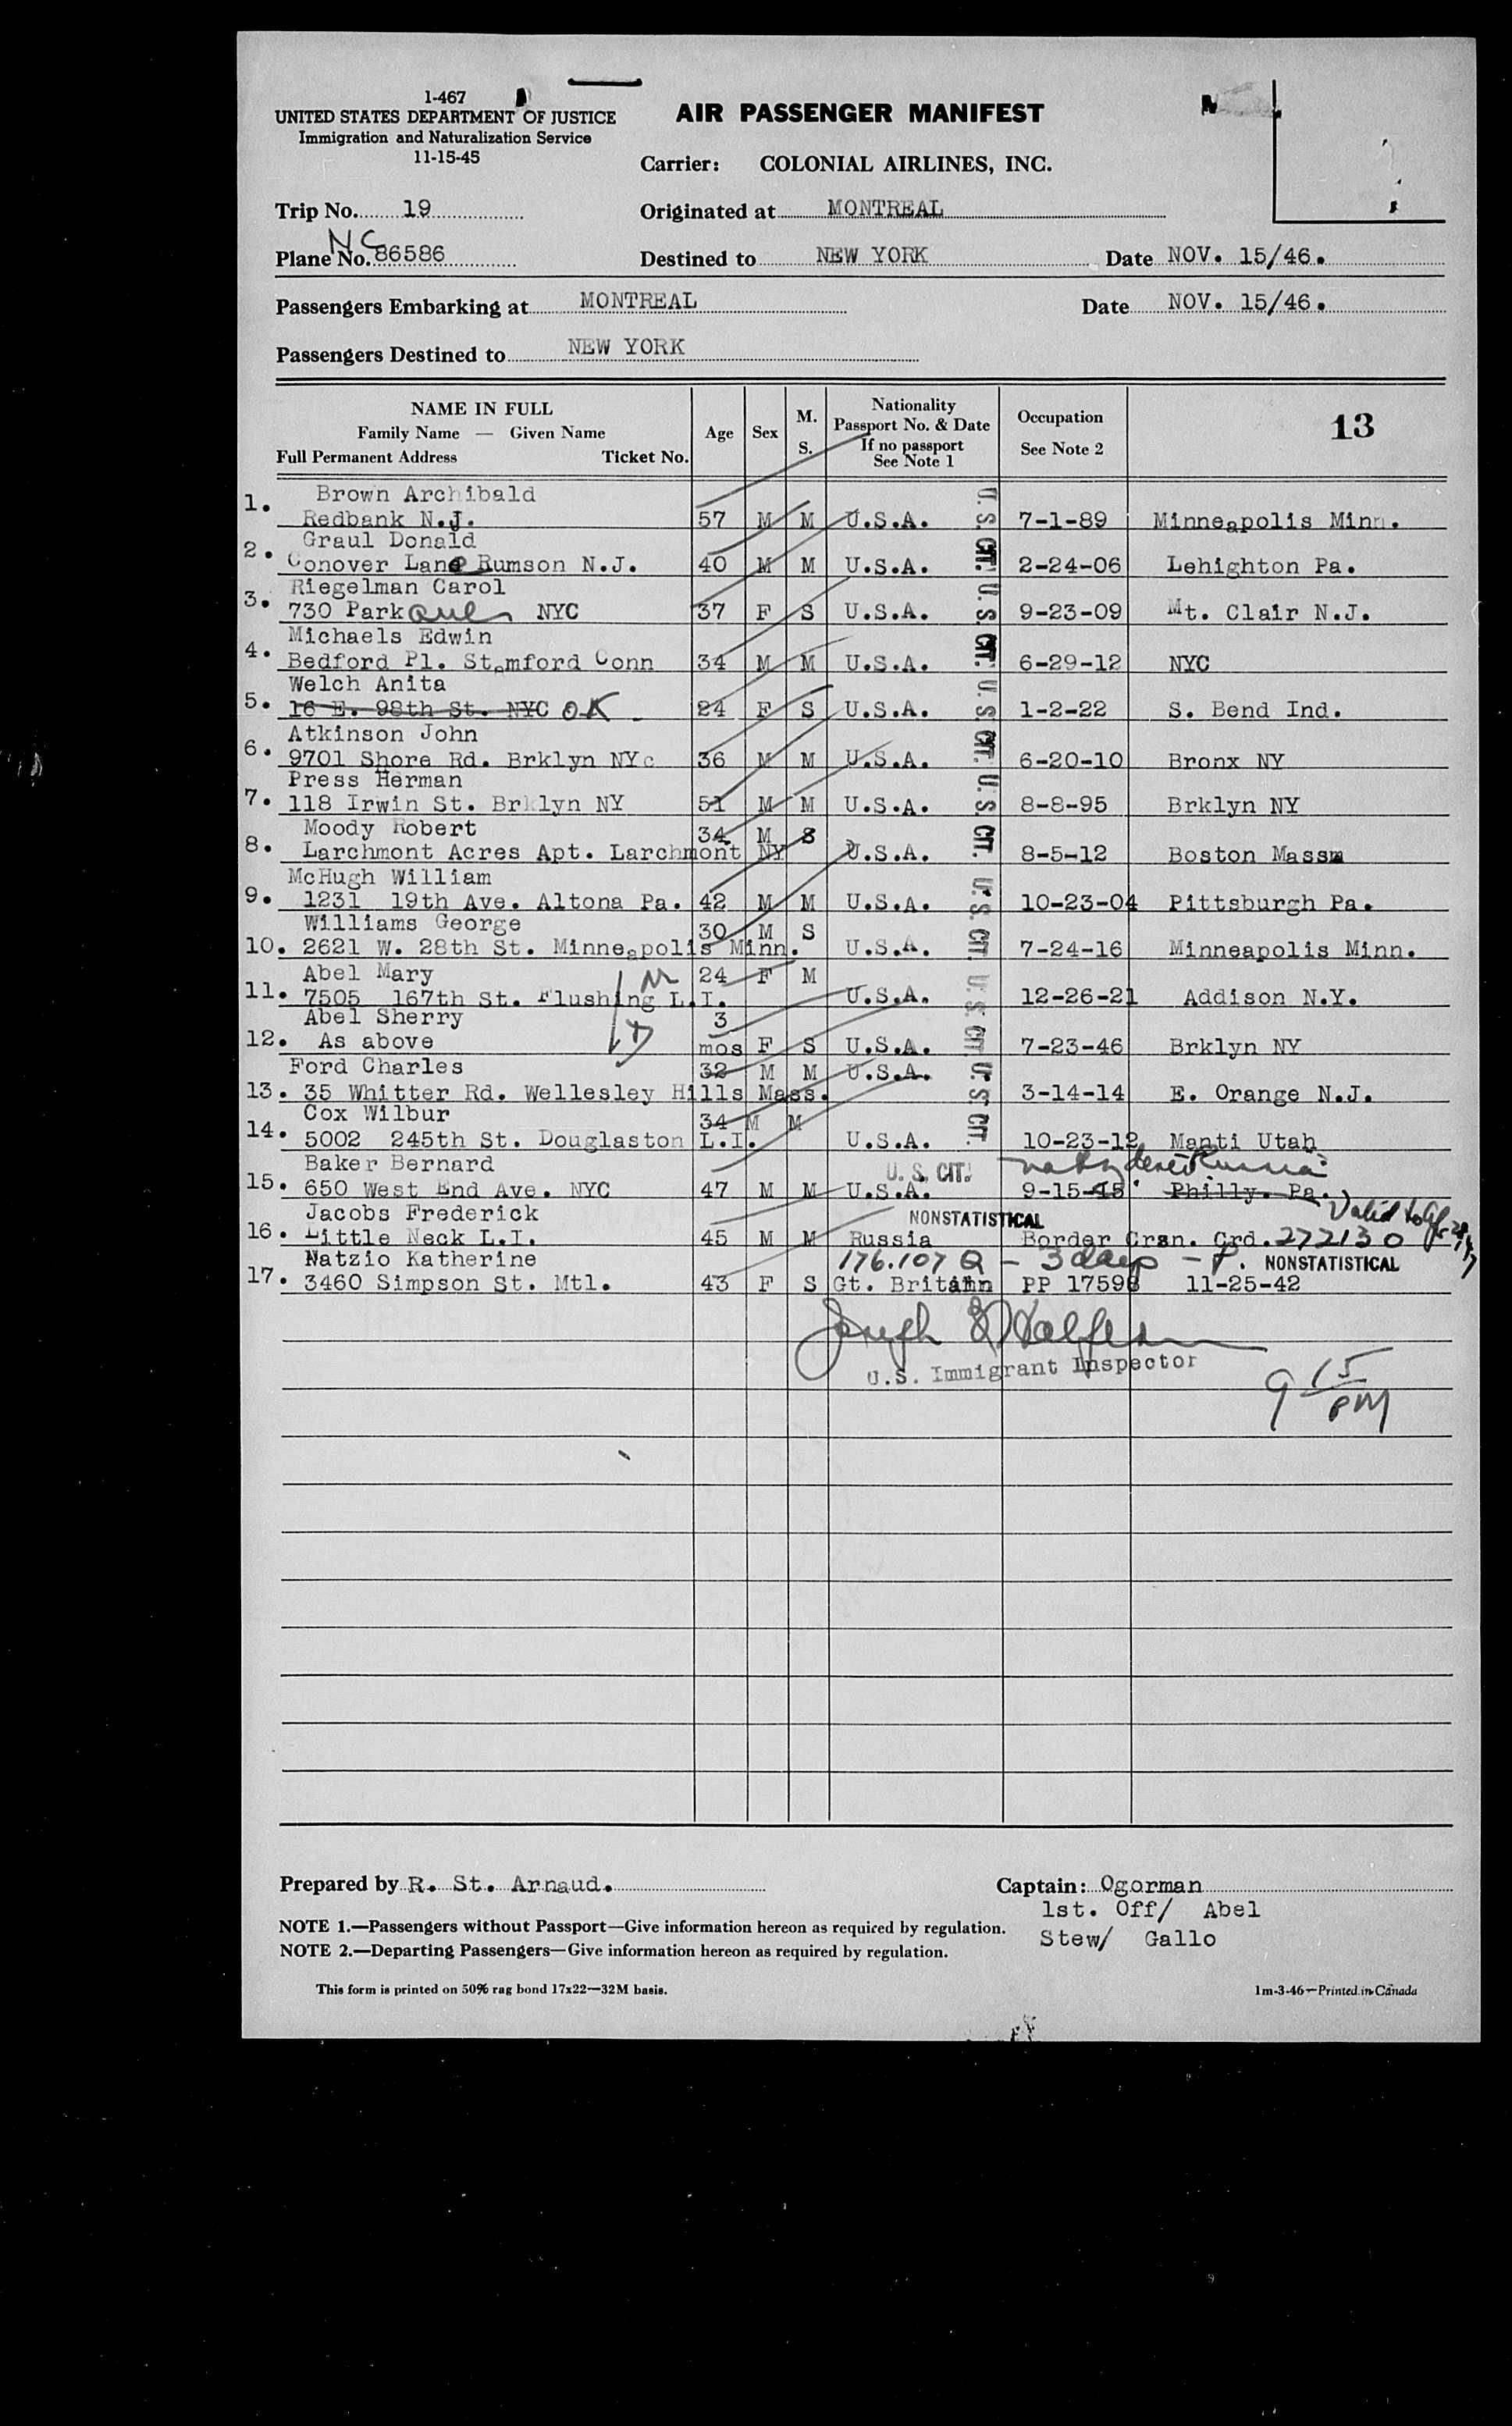 1-467
UNITED STATES DEPARTMENT OF JUSTICE
Immigration and Naturalization Service
11-15-45
AIR PASSENGER MANIFEST
Carrier: COLONIAL AIRLINES, INC.
Trip No. 19 Originated at MONTREAL
NC
Plane No. 86586 Destined to NEW YORK Date NOV. 15/46.
Passengers Embarking at MONTREAL Date NOV. 15/46.
Passengers Destined to NEW YORK
NAME IN FULL
Family Name — Given Name
Full Permanent Address Ticket No.
Age Sex M. S.
Nationality
Passport No. & Date
If no passport
See Note 1
Occupation
See Note 2
13
1. Brown Archibald
Redbank N.J. 57 M M U.S.A. U.S. CIT. 7-1-89 Minneapolis Minn.
2. Graul Donald
Conover Lane Rumson N.J. 40 M M U.S.A. 2-24-06 Lehighton Pa.
3. Riegelman Carol
730 Park Ave NYC 37 F S U.S.A. U.S. CIT. 9-23-09 Mt. Clair N.J.
4. Michaels Edwin
Bedford Pl. Stamford Conn 34 M M U.S.A. 6-29-12 NYC
5. Welch Anita
16 E. 98th St. NYC OK 24 F S U.S.A. U.S. CIT. 1-2-22 S. Bend Ind.
6. Atkinson John
9701 Shore Rd. Brklyn NYc 36 M M U.S.A. 6-20-10 Bronx NY
7. Press Herman
118 Irwin St. Brklyn NY 51 M M U.S.A. U.S. CIT. 8-8-95 Brklyn NY
8. Moody Robert 34 M S
Larchmont Acres Apt. Larchmont NY U.S.A. 8-5-12 Boston Massm
9. McHugh William
1231 19th Ave. Altona Pa. 42 M M U.S.A. U.S. CIT. 10-23-04 Pittsburgh Pa.
Williams George 30 M S
10. 2621 W. 28th St. Minneapolis Minn. U.S.A. 7-24-16 Minneapolis Minn.
Abel Mary 24 F M
11. 7505 167th St. Flushing L.I. U.S.A. U.S. CIT. 12-26-21 Addison N.Y.
Abel Sherry 3
12. As above mos F S U.S.A. 7-23-46 Brklyn NY
Ford Charles 32 M M U.S.A.
13. 35 Whitter Rd. Wellesley Hills Mass. U.S. CIT. 3-14-14 E. Orange N.J.
Cox Wilbur 34 M M
14. 5002 245th St. Douglaston L.I. U.S.A. 10-23-12 Manti Utah
Baker Bernard U.S. CIT. Russia
15. 650 West End Ave. NYC 47 M M U.S.A. 9-15- Philly. Pa.
Jacobs Frederick NONSTATISTICAL Valid to
16. Little Neck L.I. 45 M M Russia Border Crsn. Crd. 272130
Natzio Katherine 176.107 Q - 3 days - P. NONSTATISTICAL
17. 3460 Simpson St. Mtl. 43 F S Gt. Britain PP 17598 11-25-42
Joseph
U.S. Immigrant Inspector
9 15 PM
Prepared by R. St. Arnaud. Captain: Ogorman
1st. Off/ Abel
NOTE 1.—Passengers without Passport—Give information hereon as required by regulation.
Stew/ Gallo
NOTE 2.—Departing Passengers—Give information hereon as required by regulation.
This form is printed on 50% rag bond 17x22—32M basis. 1m-3-46—Printed in Canada